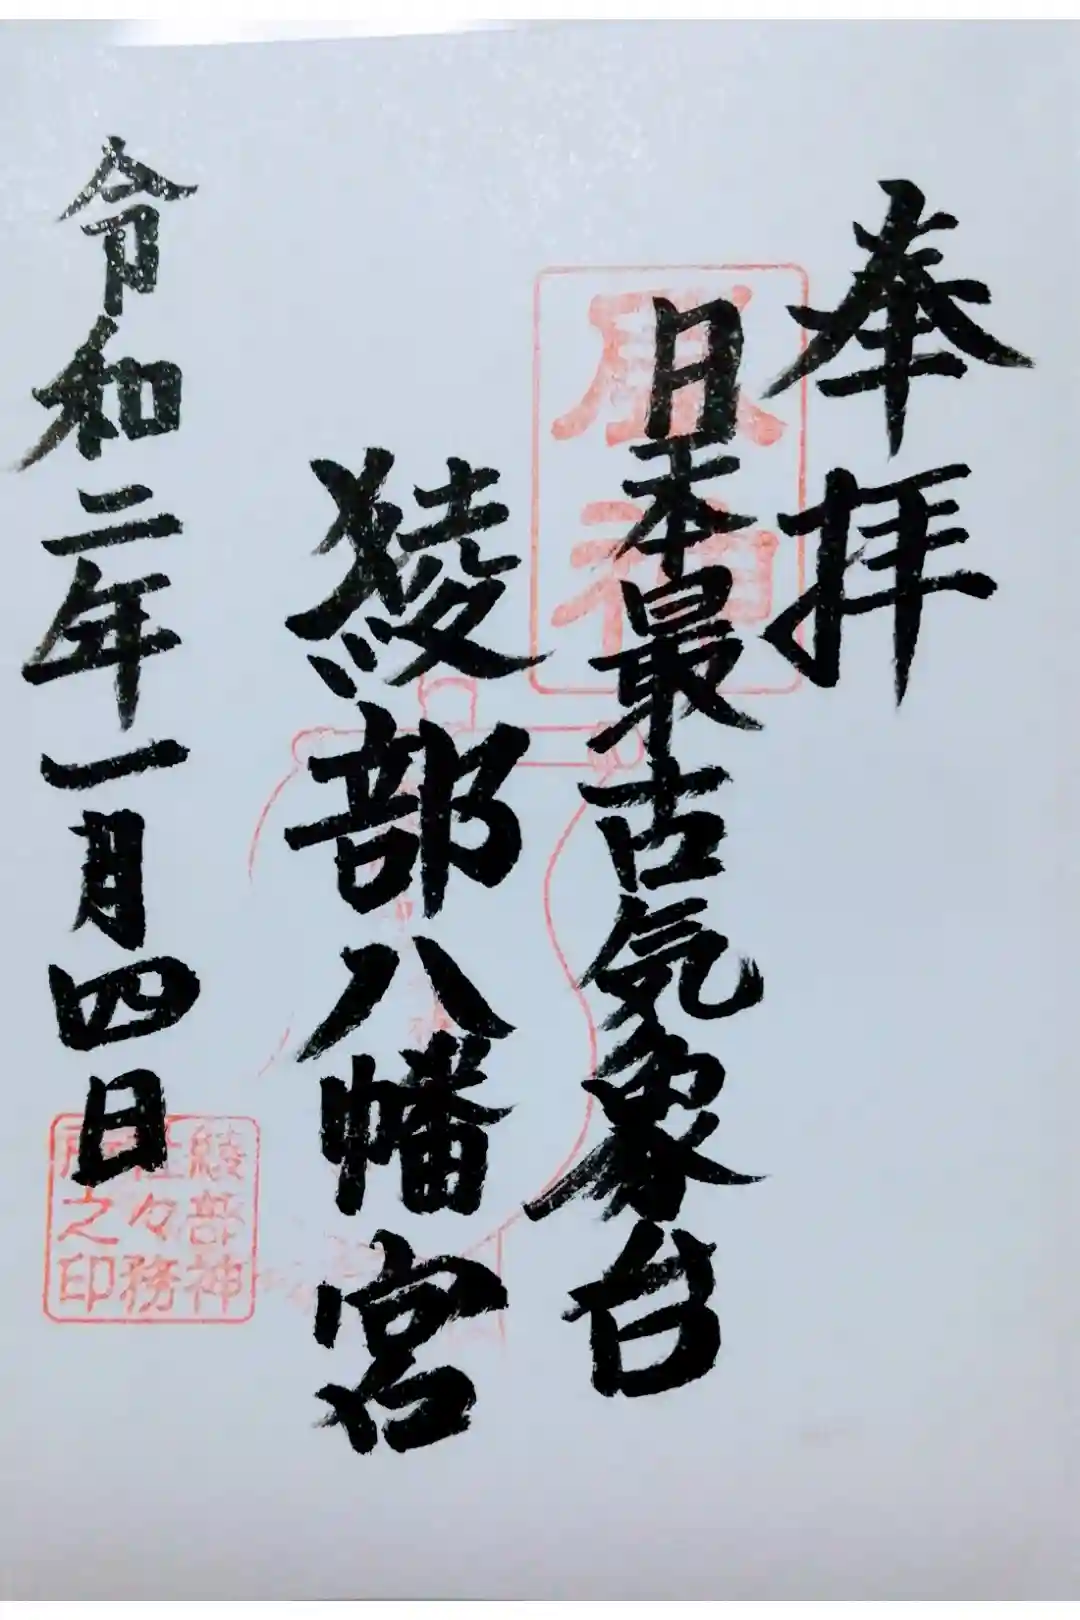 奉拝
日本最古気象台
風神
綾部八幡宮
令和二年一月四日
綾部神
社々務
所之印